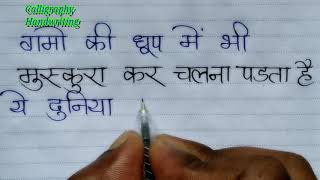 Calligraphy
Handwriting
गमों की धूप में भी
मुस्कुरा कर चलना पडता है
ये दुनिया